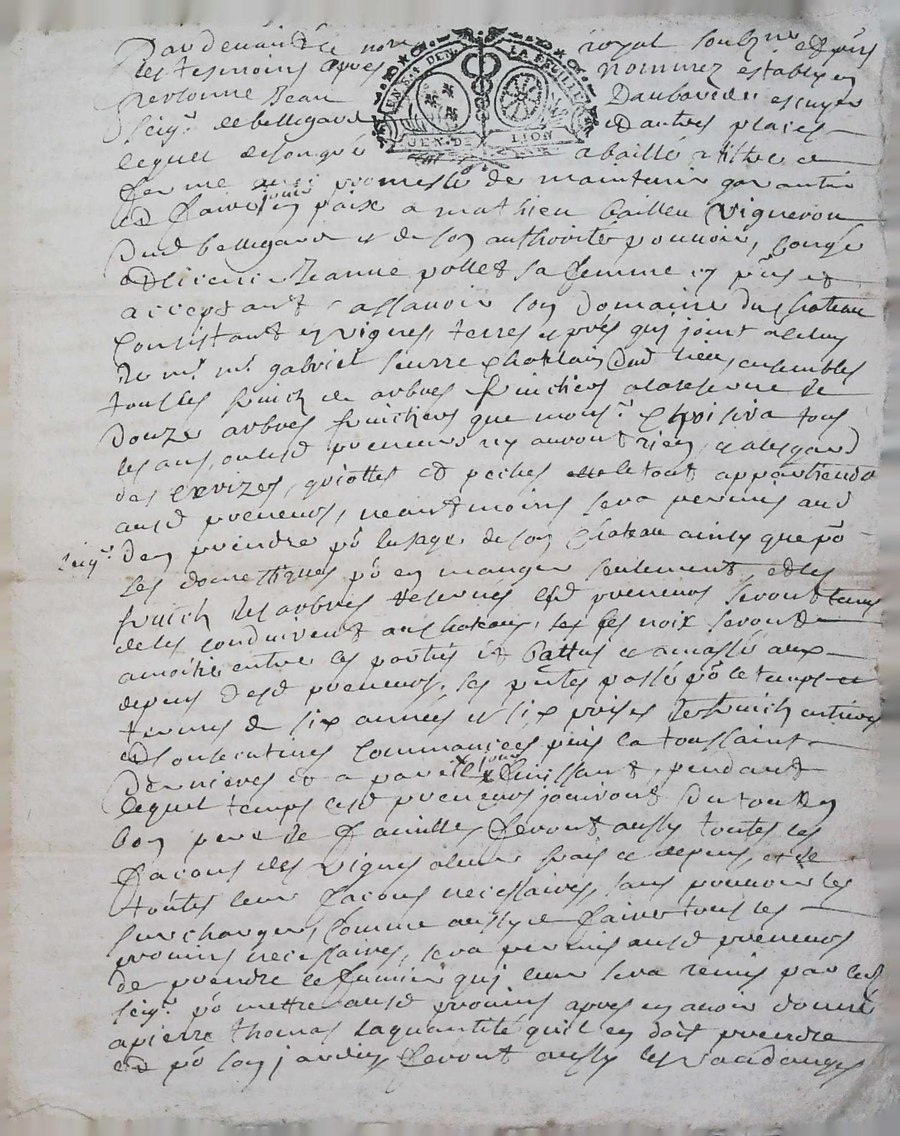 Pardevant le no.re royal soubz.né et puis
les tesmoins apres nommez estably en
personne Jean Daubarede escuyer
seig.r de bellegarde et autres places
lequel de son gré a baillé a titre de
ferme avec promesse de maintenir garantir
et faire jouir en paix a mathieu Caillou Vigneron
dud bellegarde et de son authorité pouvoir, congé
et licence Jeanne pollet sa femme icy p.ns et
acceptant assavoir son Domaine du Chateau
Consistant en vignes, terres et prés qui joint a celuy
de m.r m.e gabriel Chatelain dud lieu, ensembles
tous les fruich de arbres fruichiers a la reserve de
douze arbres fruichiers que mons.r Choisira tous
les ans, ou lesd preneurs ny auront rien, a lesgard
des cerizes, griottes et peches le tout appartiendra
ausd preneurs, neantmoins sera permis aud
seig.r den prendre p.r lusage de son Chateau ainsy que p.r
les domestiques p.r en manger seulement, et les
fruich des arbres reservés lesd preneurs seront tenus
de les conduire au Chateau, les noix seront
a moitié entre les parties et battus et amassé aux
depens desd preneurs, les p.ntes passé p.r le temps et
termes de six années et six prises de fruich entieres
et consecutives Commancées puis la toussaint
derniere et a pareil jour finissant, pendant
lequel temps lesd preneurs jouiront du tout en
bon pere de famille, feront aussy toutes les
facons des vignes a leur frais et depens, et de
toutes leur facons necessaires, sans pouvoir les
surcharger, Comme aussy de faire tous les
provins necessaires, sera permis ausd preneurs
de prendre le fumier qui leur sera remis par led
seig.r p.r mettre ausd provins apres en avoir donné
a pierre thomas la quantité quil en doit prendre
et p.r son jardin, feront aussy les vandanges
GEN.DE LION